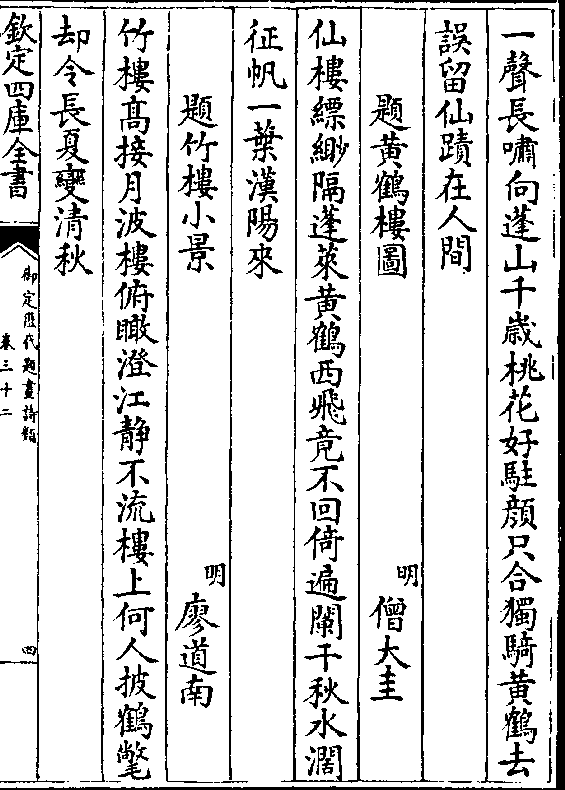 一聲長嘯向蓬山千歳桃花好駐顔只合獨騎黄鶴去
誤留仙蹟在人間
題黄鶴樓圖
明
僧大圭
仙樓縹緲隔蓬萊黄鶴西飛竟不回倚遍闌干秋水濶
征帆一葉漢陽來
題竹樓小景
明
廖道南
竹樓髙接月波樓俯瞰澄江靜不流樓上何人披鶴氅
却令長夏變清秋
欽定四庫全書
御定歴代題畫詩類
卷三十二
四